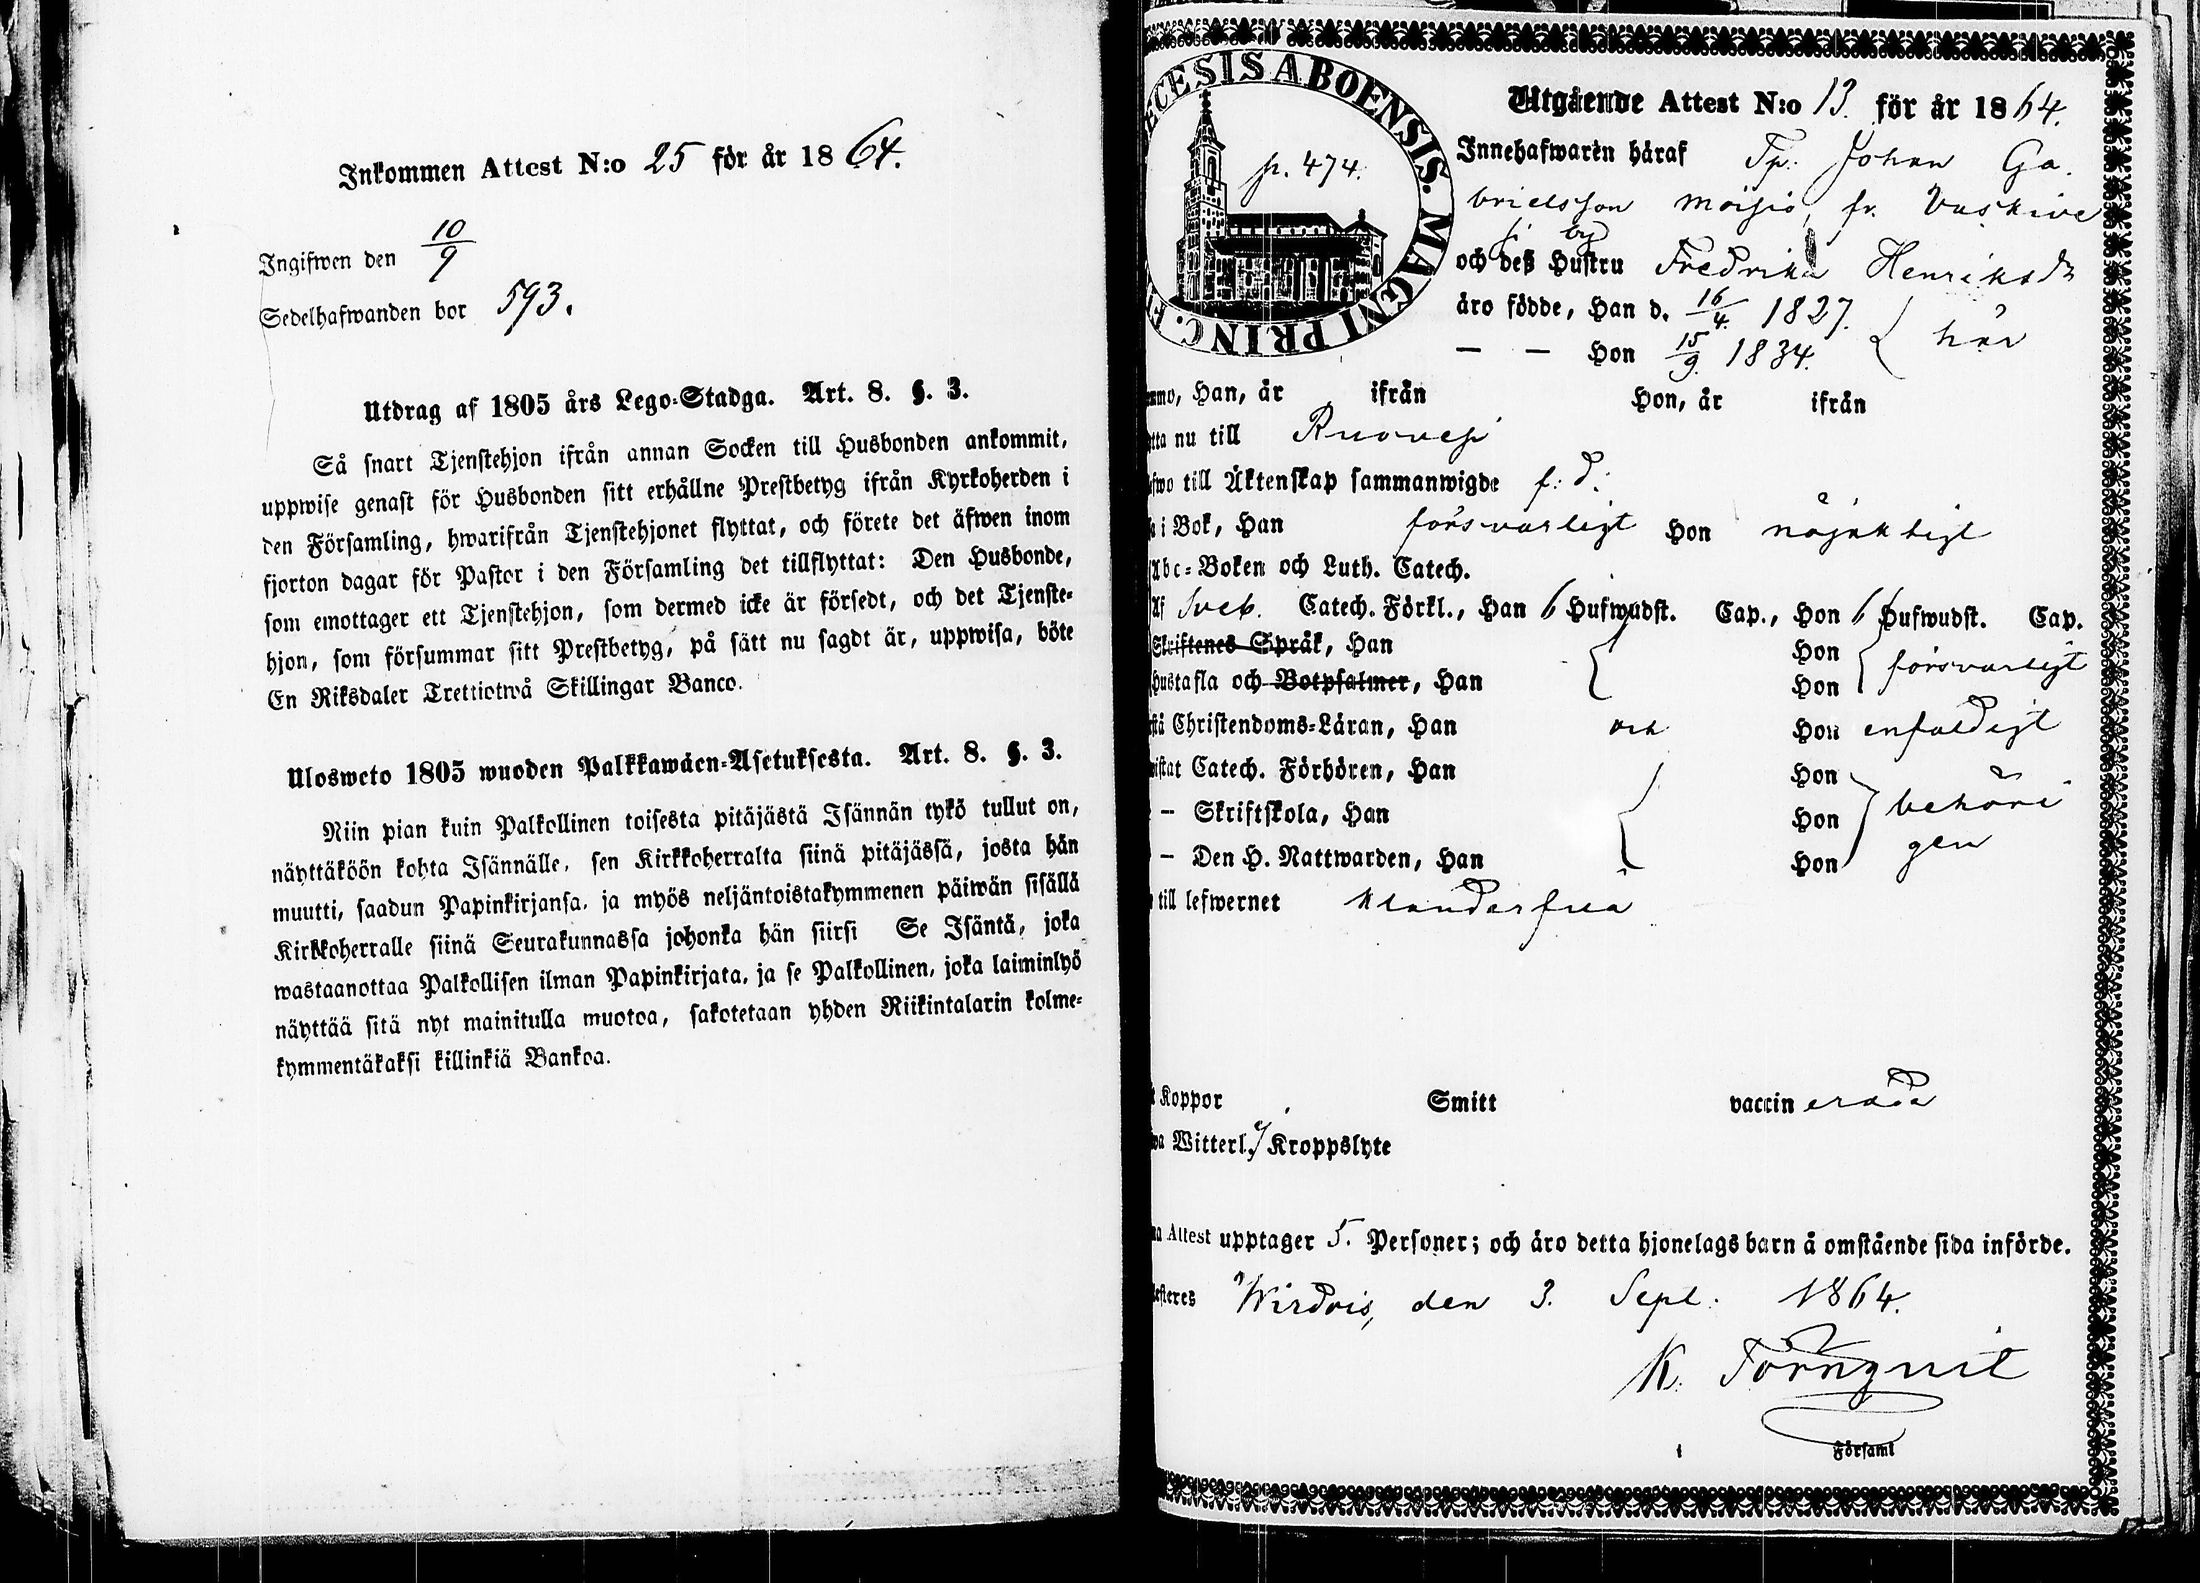 Inkommen Attest N:o 25 för år 1864.
Ingifwen den 10/9
Sedelhafwanden bor 593.
Utdrag af 1805 års Lego-Stadga. Art. 8. §. 3.
Så snart Tjenstehjon ifrån annan Socken till Husbonden ankommit,
uppwise genast för Husbonden sitt erhållne Prestbetyg ifrån Kyrkoherden i
den Församling, hwarifrån Tjenstehjonet flyttat, och förete det äfwen inom
fjorton dagar för Pastor i den Församling det tillflyttat: Den Husbonde,
som emottager ett Tjenstehjon, som dermed icke är försedt, och det Tjenste-
hjon, som försummar sitt Prestbetyg, på sätt nu sagdt är, uppwisa, böte
En Riksdaler Trettiotwå Skillingar Banco.
Ulosweto 1805 wuoden Palkkawäen-Asetuksesta. Art. 8. §. 3.
Niin pian kuin Palkollinen toisesta pitäjästä Isännän tykö tullut on,
näyttäköön kohta Isännälle, sen Kirkkoherralta siinä pitäjässä, josta hän
muutti, saadun Papinkirjansa, ja myös neljäntoistakymmenen päiwän sisällä
Kirkkoherralle siinä Seurakunnassa johonka hän siirsi Se Isäntä, joka
wastaanottaa Palkollisen ilman Papinkirjata, ja se Palkollinen, joka laiminlyö
näyttää sitä nyt mainitulla muotoa, sakotetaan yhden Riikintalarin kolme-
kymmentäkaksi killinkiä Bankoa.
ECESIS ABOENSIS. MAGNI PRINC. F
p. 474.
Utgående Attest N:o 13. för år 1864.
Innehafwaren häraf Tp. Johan Ga
brielsson Moisio, fr. Vaskive
si by
och deß Hustru Fredrika Henriksdr
äro födde, Han d. 16/4. 1827. här
— — Hon 15/9. 1834.
mmo, Han, år ifrån Hon, år ifrån
tta nu till Ruovesi
fwo till Äktenskap sammanwigde f. d.
a i Bok, Han försvarligt Hon nöjaktigt
Abc-Boken och Luth. Catech.
Af Sveb. Catech. Förkl., Han 6 Hufwudst. Cap., Hon 6 Hufwudst. Cap.
Skriftenes Språk, Han Hon försvarligt
Hustafla och Botpsalmer, Han Hon
stå Christendoms-Läran, Han och Hon enfaldigt
wistat Catech. Förhören, Han Hon
– Skriftskola, Han Hon behöri
– Den H. Nattwarden, Han Hon gen
till lefwernet klanderfria
t Koppor Smitt vaccinerade
wa Witterl. Kroppslyte
na Attest upptager 5. Personer; och äro detta hjonelags barn å omstående sida införde.
testeres Wirdois, den 3. Sept. 1864.
K. Törnqvist
Församl